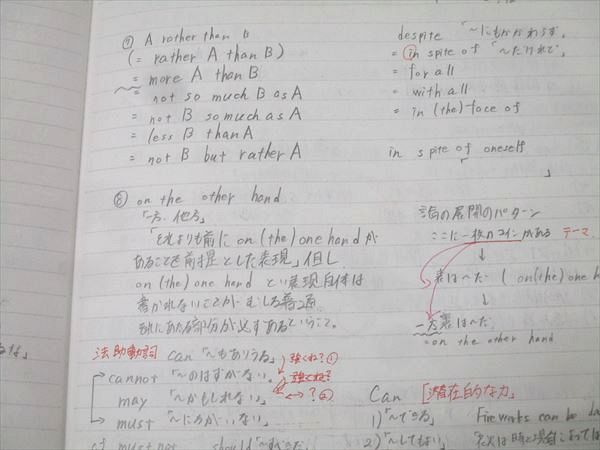 ⑦ A rather than B
(= rather A than B)
= more A than B
= not so much B as A
= not B so much as A
= less B than A
= not B but rather A
despite 「〜にもかかわらず,
= in spite of 「〜だけれど」
= for all
= with all
= in (the) face of
in spite of oneself
「 」
⑧ on the other hand
「一方、他方」
「それよりも前に on (the) one hand が
あることを前提とした表現」但し
on (the) one hand という表現自体は
書かれないことがむしろ普通。
それにあたる部分が必ずあるということ。
論の展開のパターン
ここに一枚のコインがある テーマ
↓
表は〜だ ( on (the) one h
↓
一方裏は〜だ
= on the other hand
法助動詞 can 「〜もありうる」 強くね?①
cannot 「〜のはずがない。」 強くね?
may 「〜かもしれない。」 ↔ ?②
must 「〜にちがいない」
cf must not should 「〜すべきだ
Can [潜在的な力]
1) 「〜できる」 Fireworks can be da
2) 「〜してもよい」 花火は時と場合によっては